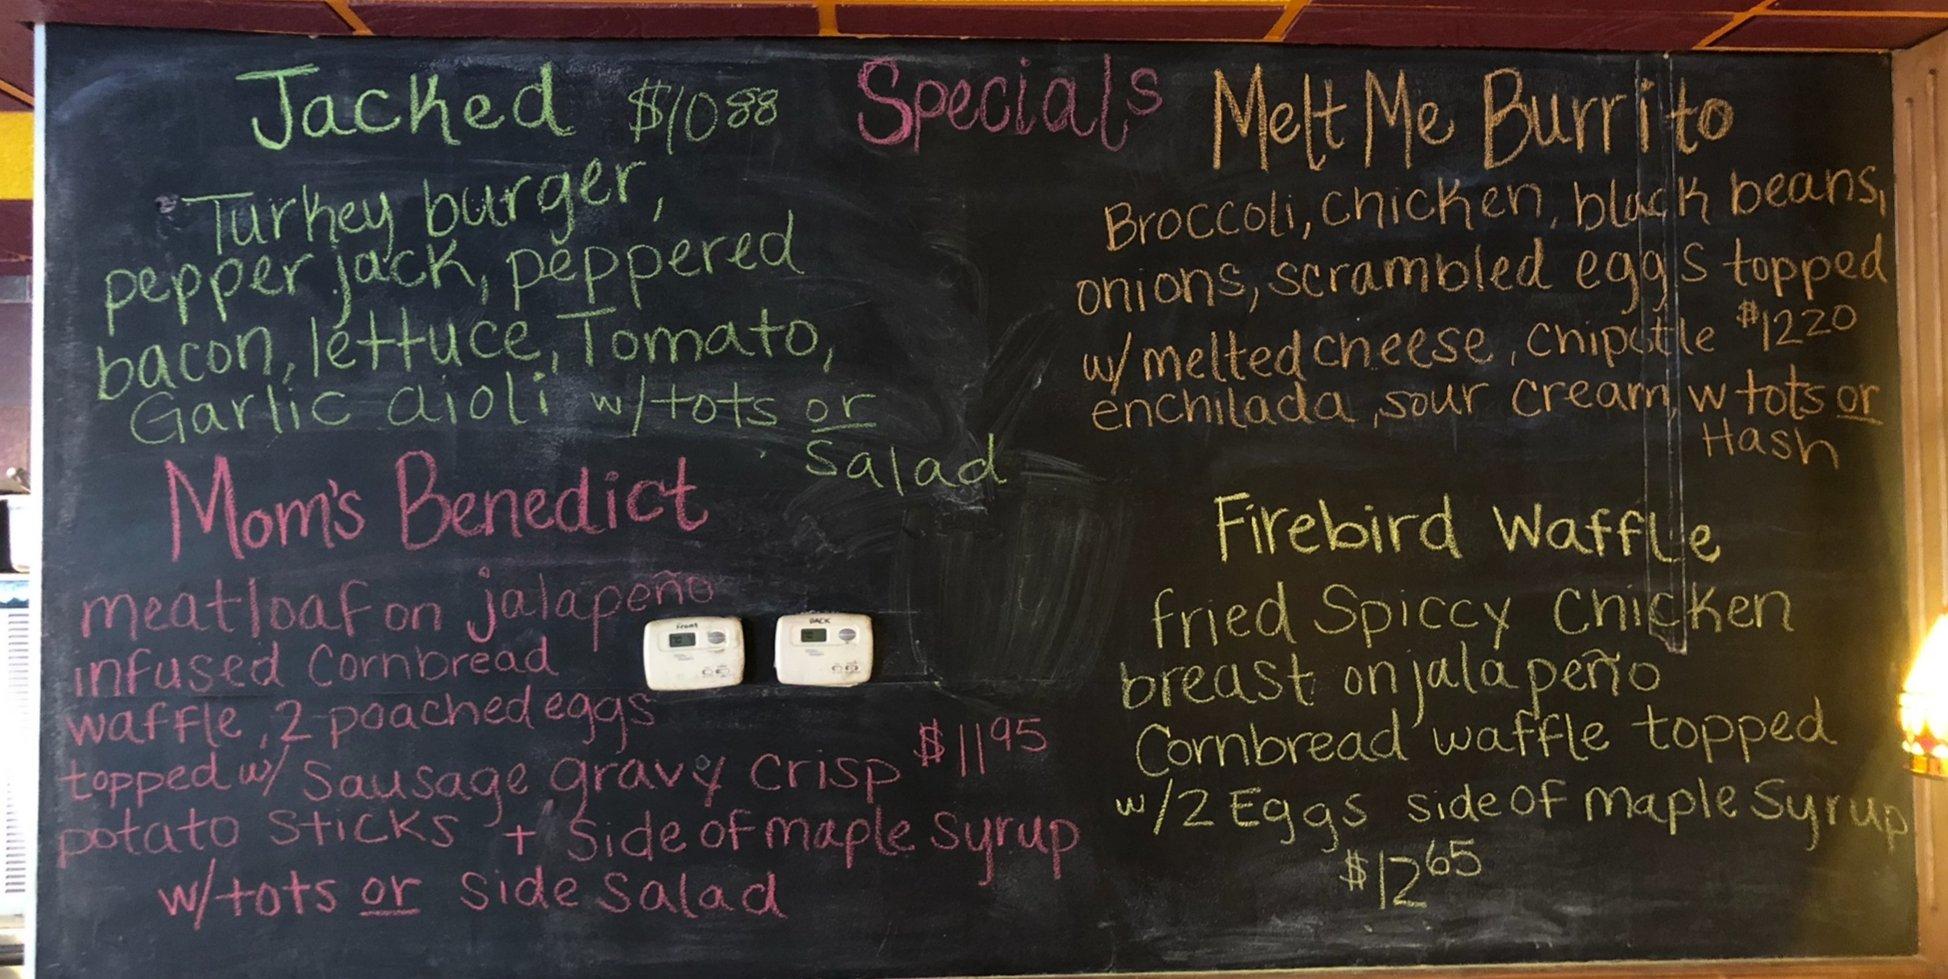 Specials
Jacked $10 88
Turkey burger,
pepper jack, peppered
bacon, lettuce, Tomato,
Garlic aioli w/tots or
Salad
Mom's Benedict
meatloaf on jalapeño
infused Cornbread
waffle, 2 poached eggs
topped w/ Sausage gravy crisp $11 95
potato sticks + side of maple syrup
w/tots or side salad
Melt Me Burrito
Broccoli, chicken, black beans,
onions, scrambled eggs topped
w/ melted cheese, chipotle $12 20
enchilada, sour cream, w tots or
Hash
Firebird Waffle
fried Spiccy Chicken
breast on jalapeño
Cornbread waffle topped
w/2 Eggs side of maple syrup
$12 65
Front
BACK